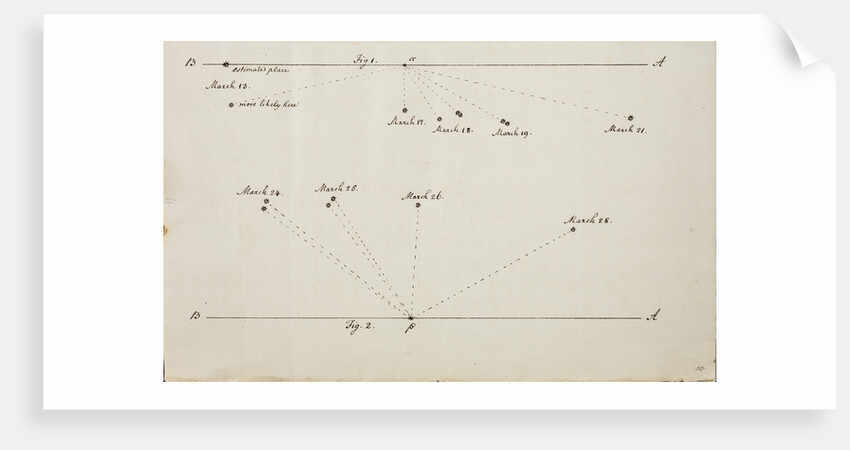 B Fig 1. α A
estimated place
March 13.
more likely here
March 17. March 18. March 19. March 21.
March 24. March 25. March 26.
March 28.
B A
Fig. 2. β